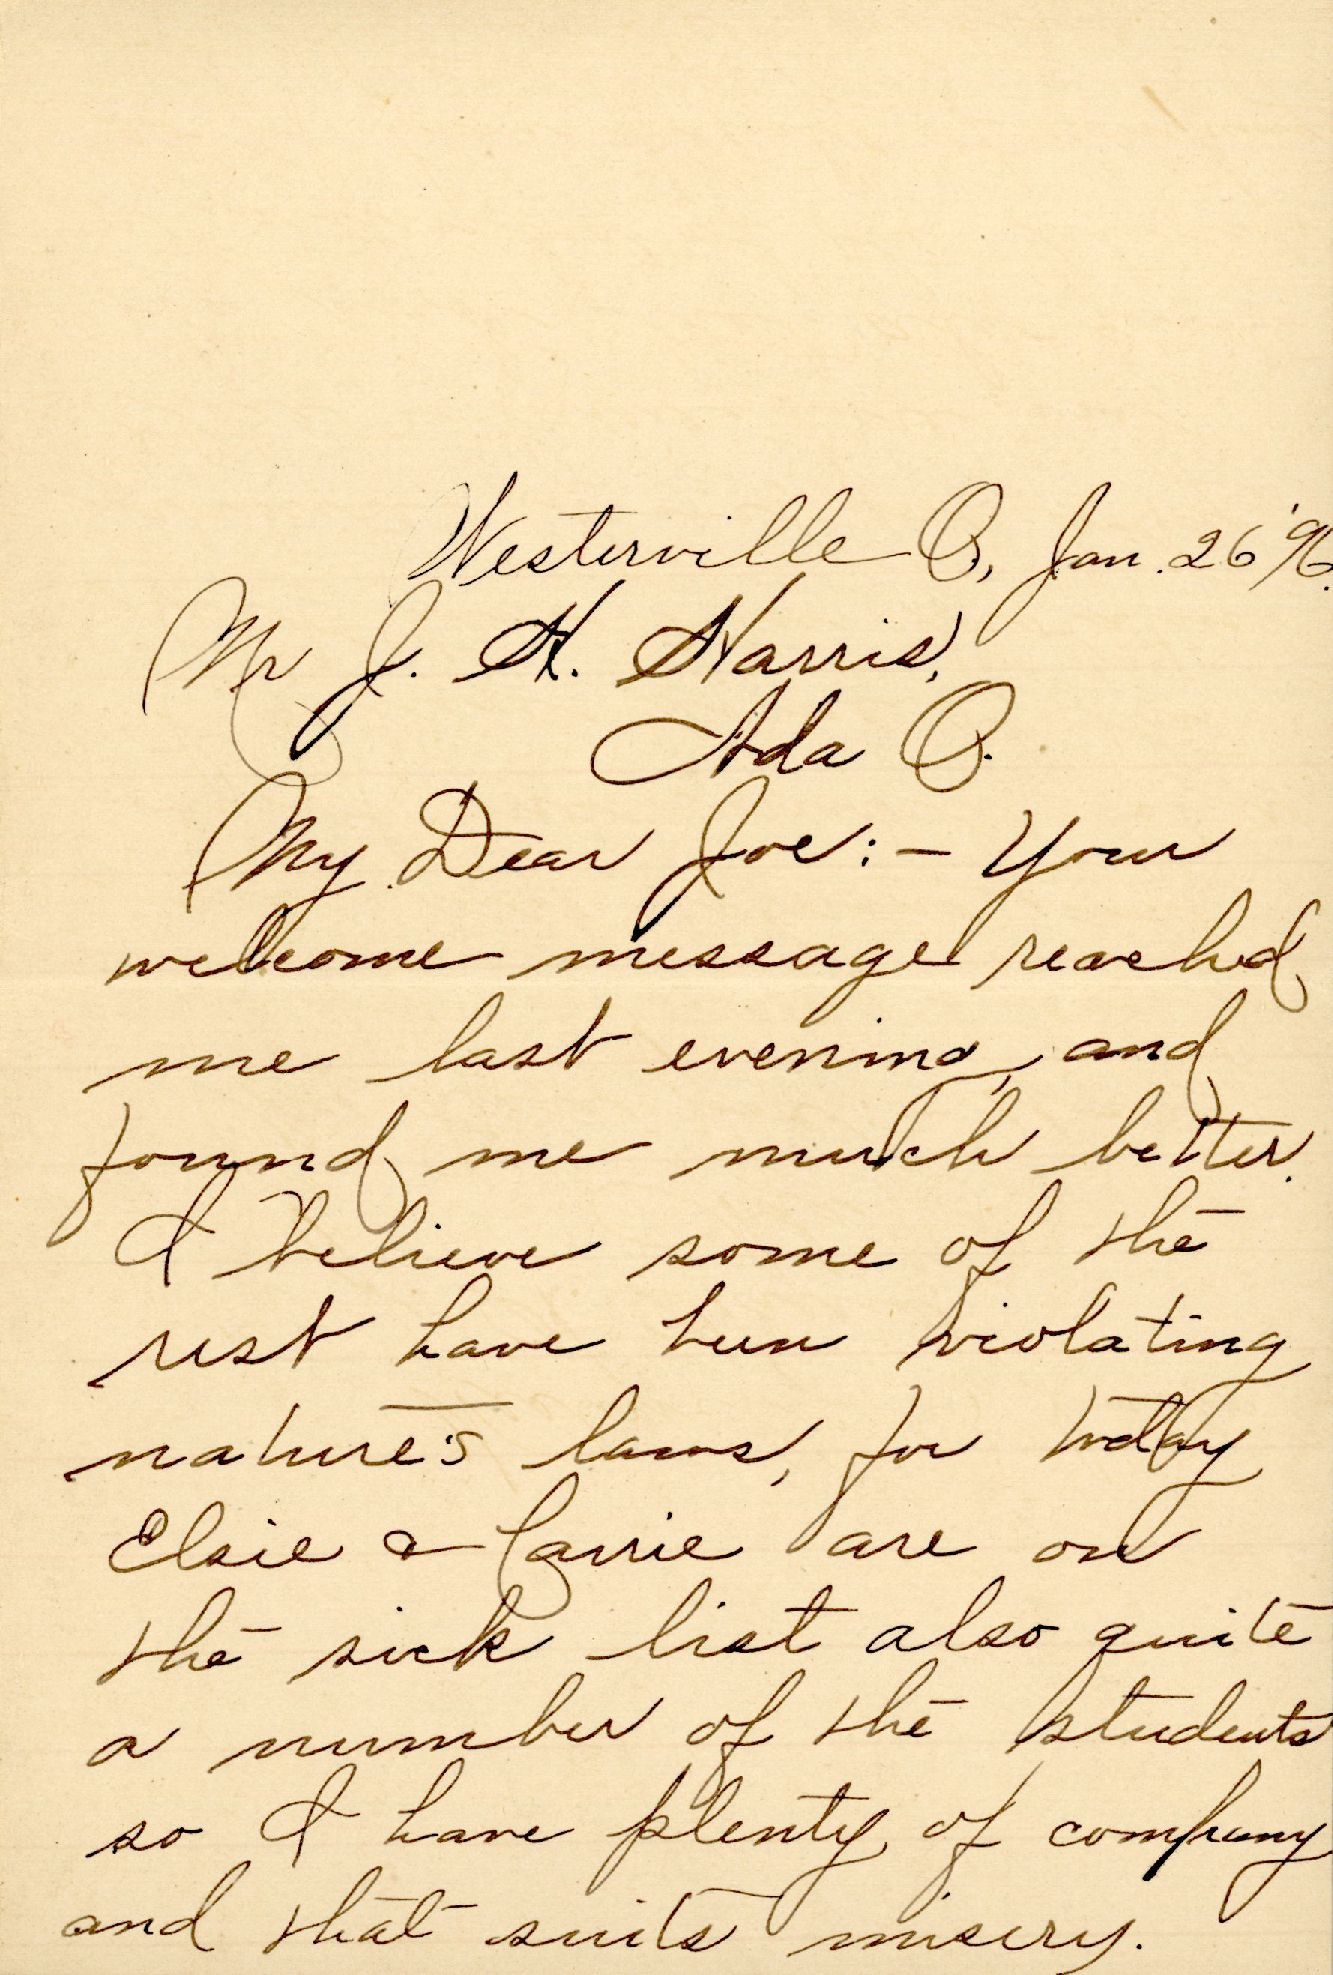 Westerville O., Jan. 26 '96.
Mr J. H. Harris,
Ada O.
My Dear Joe:- Your
welcome message reached
me last evening, and
found me much better.
I believe some of the
rest have been violating
nature's laws, for today
Elsie & Carrie are on
the sick list also quite
a number of the students
so I have plenty of company
and that suits misery.